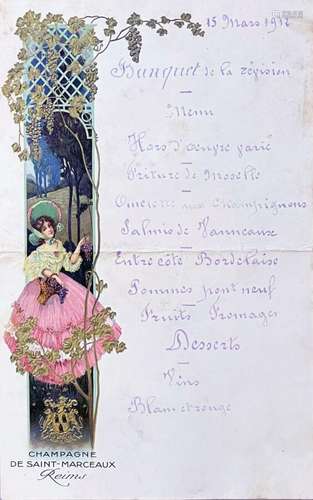 15 Mars 1912
Banquet de la révision
Menu
Hors d'œuvre varié
Friture de Moselle
Omelette aux Champignons
Salmis de Vanneaux
Entre côte Bordelaise
Pommes pont neuf
Fruits Fromages
Desserts
Vins
Blanc et rouge
CHAMPAGNE
DE SAINT-MARCEAUX
Reims